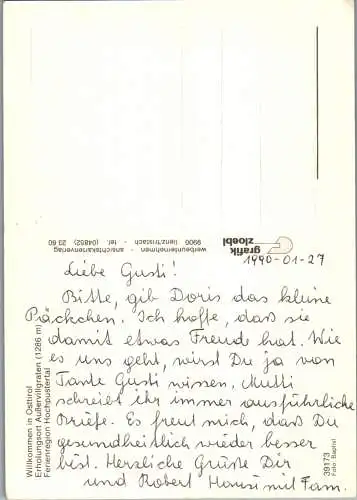 grafik
zloebl
werbeunternehmen - ansichtskartenverlag
9900 lienz/tristach - tel. (04852) 23 60
1990-01-27
Liebe Gusti!
Bitte, gib Doris das kleine
Päckchen. Ich hoffe, daß sie
damit etwas Freude hat. Wie
es uns geht, wirst Du ja von
Tante Gusti wissen. Mutti
schreibt ihr immer ausführliche
Briefe. Es freut mich, daß Du
gesundheitlich wieder besser
bist. Herzliche Grüße Dir
und Robert Hansi mit Fam.
Willkommen in Osttirol
Erholungsort Außervillgraten (1286 m)
Ferienregion Hochpustertal
39173
Foto: Baptist